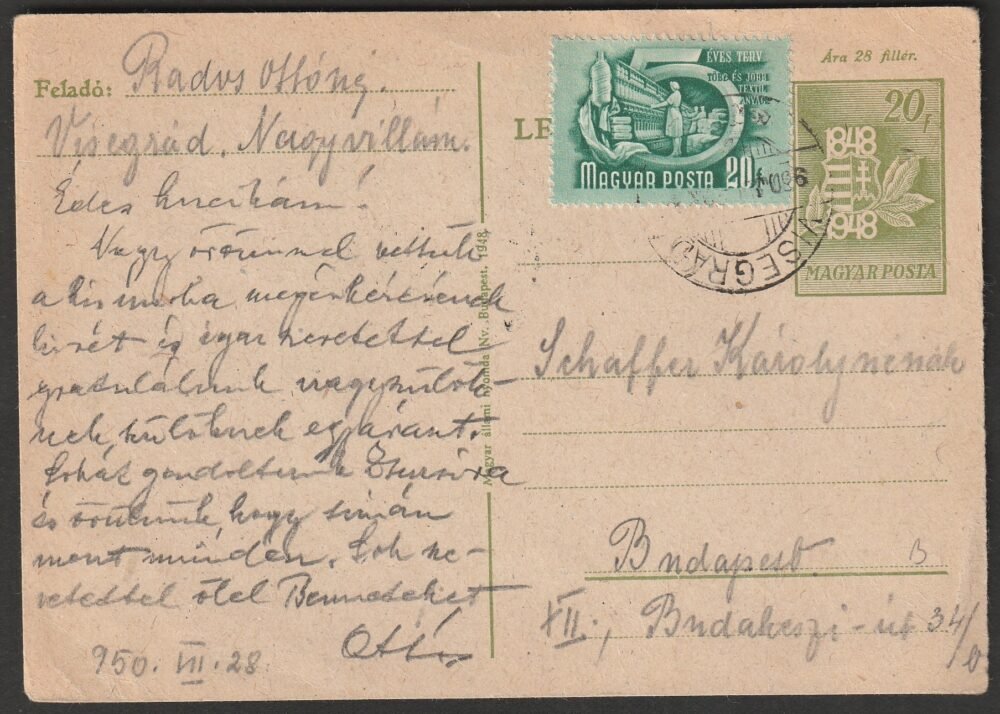 Feladó: Rados Ottóné.
Visegrád, Nagyvillám.
Édes
Nagy örömmel vettük
a kis unoka megérkezésének
hírét és igaz szeretettel
gratulálunk nagyszülők-
nek, szülőknek egyaránt.
Sokat gondoltunk Zsuzsira
és örülünk, hogy simán
ment minden. Sok sze-
retettel ölel Benneteket
Ottó
950. VII. 28
Magyar állami nyomda Nv., Budapest, 1948.
LE
5 ÉVES TERV
TÖBB ÉS JOBB
TEXTIL
ANYAG
MAGYAR POSTA 20f
VISEGRÁD
Ára 28 fillér.
20f
1848
1948
MAGYAR POSTA
Schaffer Károlynénak
Budapest.
B
XII., Budakeszi-út 34/b